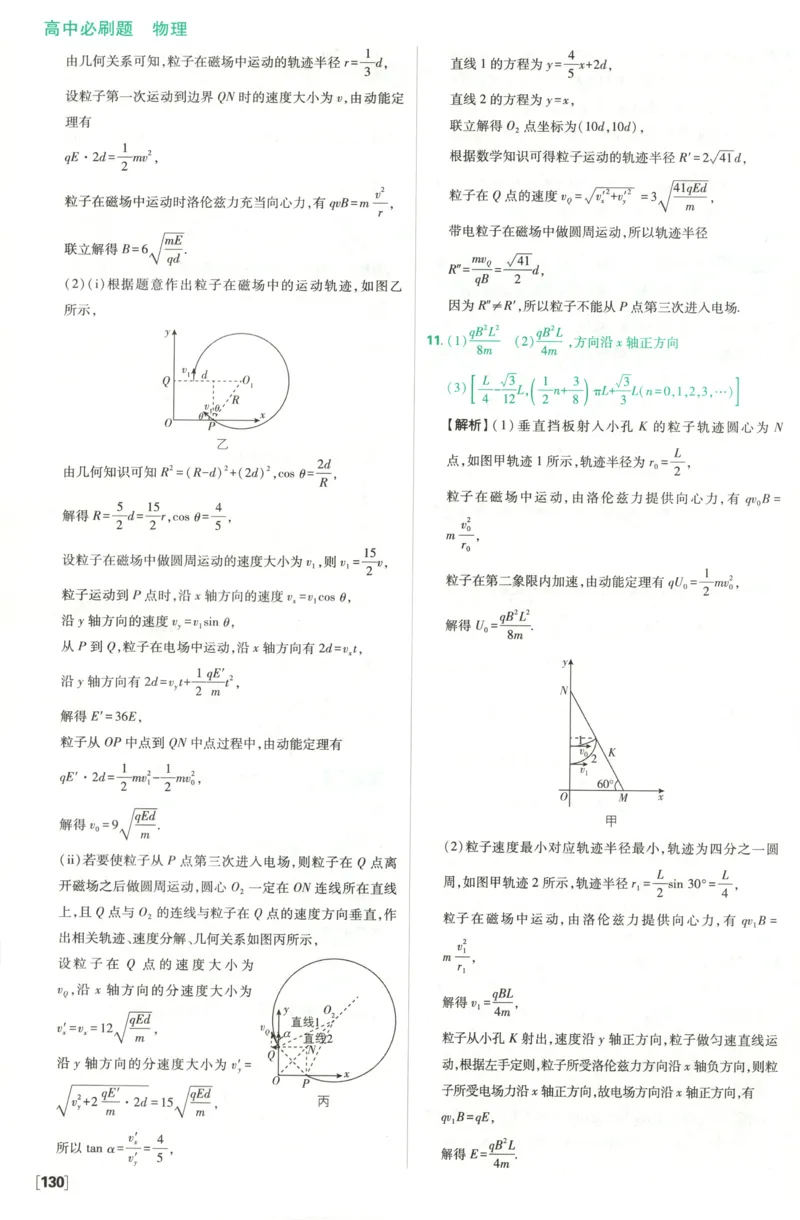 高中必刷题 物理
由几何关系可知,粒子在磁场中运动的轨迹半径 r=1/3 d,
设粒子第一次运动到边界 QN 时的速度大小为 v,由动能定
理有
qE·2d=1/2 mv²,
粒子在磁场中运动时洛伦兹力充当向心力,有 qvB=m v²/r,
联立解得 B=6√(mE/qd).
(2)(i)根据题意作出粒子在磁场中的运动轨迹,如图乙
所示,
y
Q v₁ d O₁
v₁ θ R
θ
O P x
乙
由几何知识可知 R²=(R-d)²+(2d)²,cos θ=2d/R,
解得 R=5/2 d=15/2 r,cos θ=4/5,
设粒子在磁场中做圆周运动的速度大小为 v₁,则 v₁=15/2 v,
粒子运动到 P 点时,沿 x 轴方向的速度 vₓ=v₁cos θ,
沿 y 轴方向的速度 v_y=v₁sin θ,
从 P 到 Q,粒子在电场中运动,沿 x 轴方向有 2d=vₓt,
沿 y 轴方向有 2d=v_y t+1/2 qE′/m t²,
解得 E′=36E,
粒子从 OP 中点到 QN 中点过程中,由动能定理有
qE′·2d=1/2 mv₁²-1/2 mv₀²,
解得 v₀=9√(qEd/m).
(ii)若要使粒子从 P 点第三次进入电场,则粒子在 Q 点离
开磁场之后做圆周运动,圆心 O₂ 一定在 ON 连线所在直线
上,且 Q 点与 O₂ 的连线与粒子在 Q 点的速度方向垂直,作
出相关轨迹、速度分解、几何关系如图丙所示,
设粒子在 Q 点的速度大小为
v_Q,沿 x 轴方向的分速度大小为
vₓ′=vₓ=12√(qEd/m),
沿 y 轴方向的分速度大小为 v_y′=
√(v_y²+2 qE′/m·2d)=15√(qEd/m),
y O₂
直线1
v_Q α 直线2
Q N
O P x
丙
所以 tan α=vₓ′/v_y′=4/5,
[130]
直线 1 的方程为 y=4/5 x+2d,
直线 2 的方程为 y=x,
联立解得 O₂ 点坐标为(10d,10d),
根据数学知识可得粒子运动的轨迹半径 R′=2√41 d,
粒子在 Q 点的速度 v_Q=√(vₓ′²+v_y′²)=3√(41qEd/m),
带电粒子在磁场中做圆周运动,所以轨迹半径
R″=mv_Q/qB=√41/2 d,
因为 R″≠R′,所以粒子不能从 P 点第三次进入电场.
11.(1)qB²L²/8m (2)qB²L/4m,方向沿 x 轴正方向
(3)[L/4-√3/12 L,(1/2 n+3/8)πL+√3/3 L(n=0,1,2,3,…)]
【解析】(1)垂直挡板射入小孔 K 的粒子轨迹圆心为 N
点,如图甲轨迹 1 所示,轨迹半径为 r₀=L/2,
粒子在磁场中运动,由洛伦兹力提供向心力,有 qv₀B=
m v₀²/r₀,
粒子在第二象限内加速,由动能定理有 qU₀=1/2 mv₀²,
解得 U₀=qB²L²/8m.
y
N
1
v₀ K
2
v₁
60°
O M x
甲
(2)粒子速度最小对应轨迹半径最小,轨迹为四分之一圆
周,如图甲轨迹 2 所示,轨迹半径 r₁=L/2 sin 30°=L/4,
粒子在磁场中运动,由洛伦兹力提供向心力,有 qv₁B=
m v₁²/r₁,
解得 v₁=qBL/4m,
粒子从小孔 K 射出,速度沿 y 轴正方向,粒子做匀速直线运
动,根据左手定则,粒子所受洛伦兹力方向沿 x 轴负方向,则粒
子所受电场力沿 x 轴正方向,故电场方向沿 x 轴正方向,有
qv₁B=qE,
解得 E=qB²L/4m.